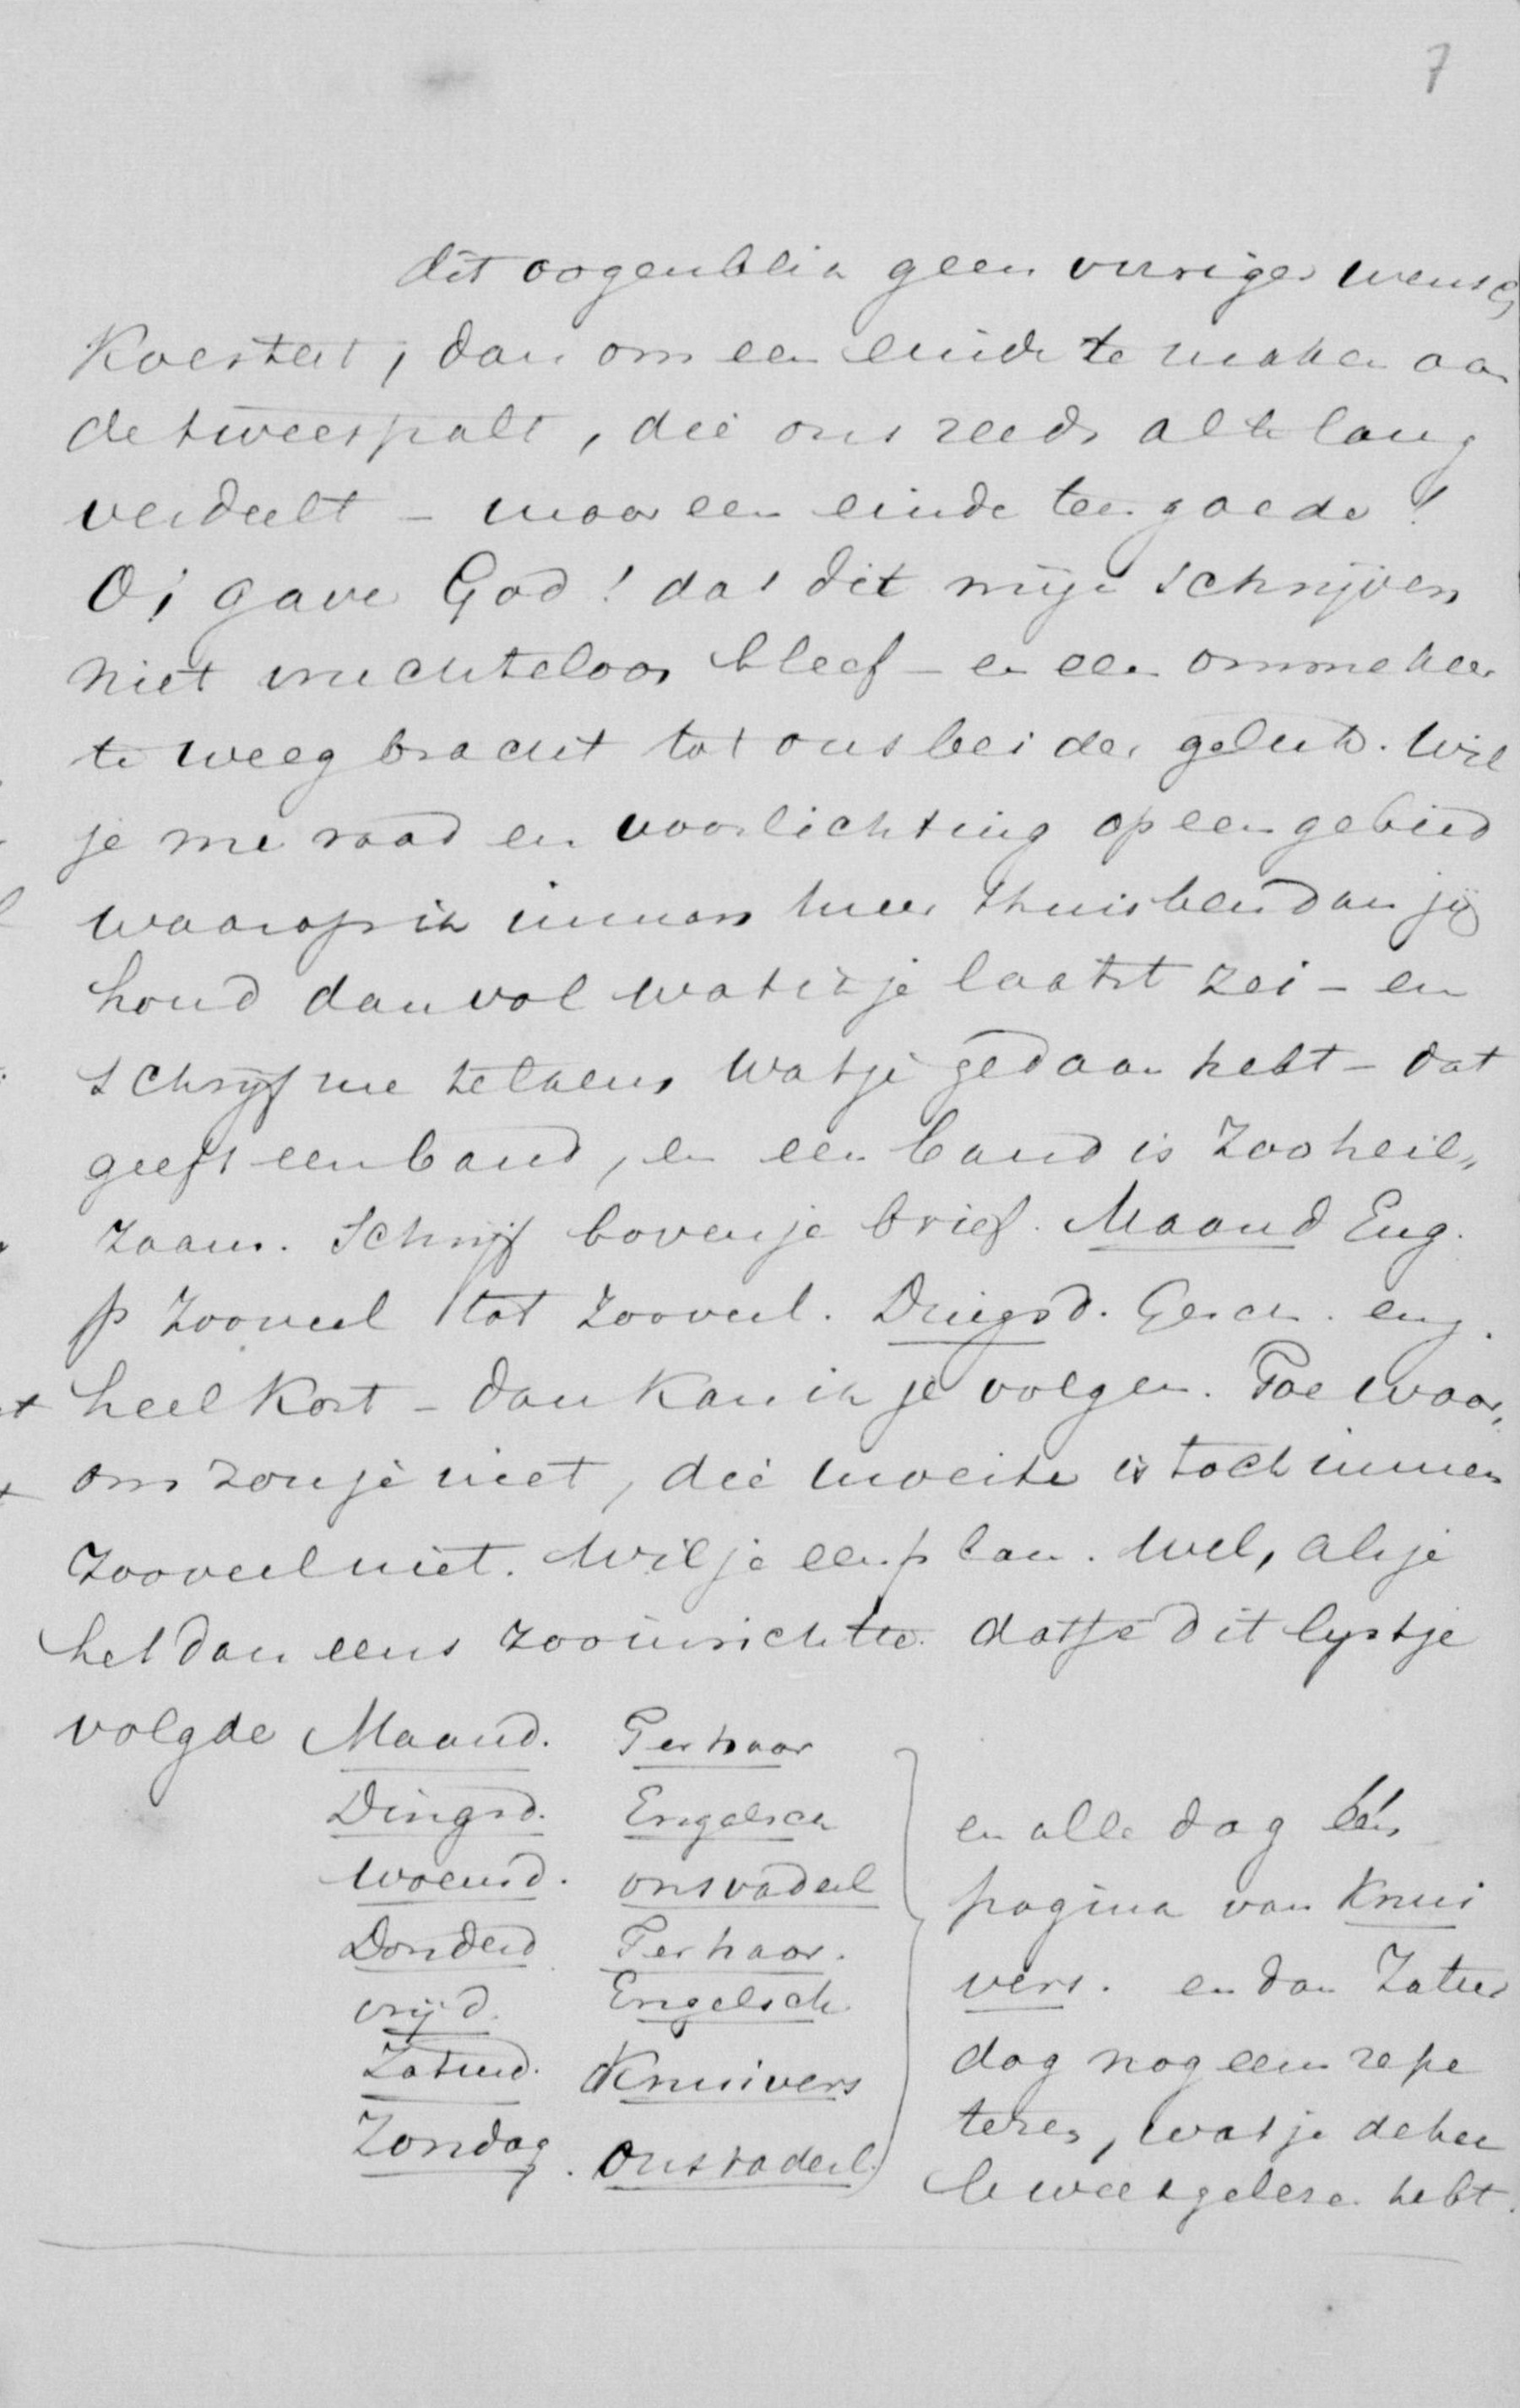 7
dit oogenblik geen vuriger wensch
koestert, dan om een einde te maken aan
de tweespalt, die ons reeds al te lang
verdeelt – maar een einde ten goede!
O, gave God! dat dit mijn schrijven
niet vruchteloos bleef – en een ommekeer
te weeg bracht tot ons beider geluk. Wil
je me raad en voorlichting op een gebied
waarop ik immers meer thuis ben dan jij
houd dan vol wat ik je laatst zei – en
schrijf me telkens wat je gedaan hebt – dat
geeft een band, en een band is zoo heil„
zaam. Schrijf boven je brief. Maand Eng.
p zooveel tot zooveel. Dingsd. Gesch. enz.
heel kort – dan kan ik je volgen. Toe waar„
om zou je niet, die moeite is toch immers
zooveel niet. Wil je een plan. Wel, als je
het dan eens zoo inrichtte. dat je dit lystje
volgde Maand. Terhaar
Dingsd. Engelsch
Woensd. onsvaderl
Donderd Terhaar.
vrijd. Engelsch
Zaturd. Knuivers
Zondag. Onsvaderl.
en alle dag één
pagina van Knui
vers. en dan Zatur
dag nog eens repe
teren, wat je de hee
le week gelezen hebt.